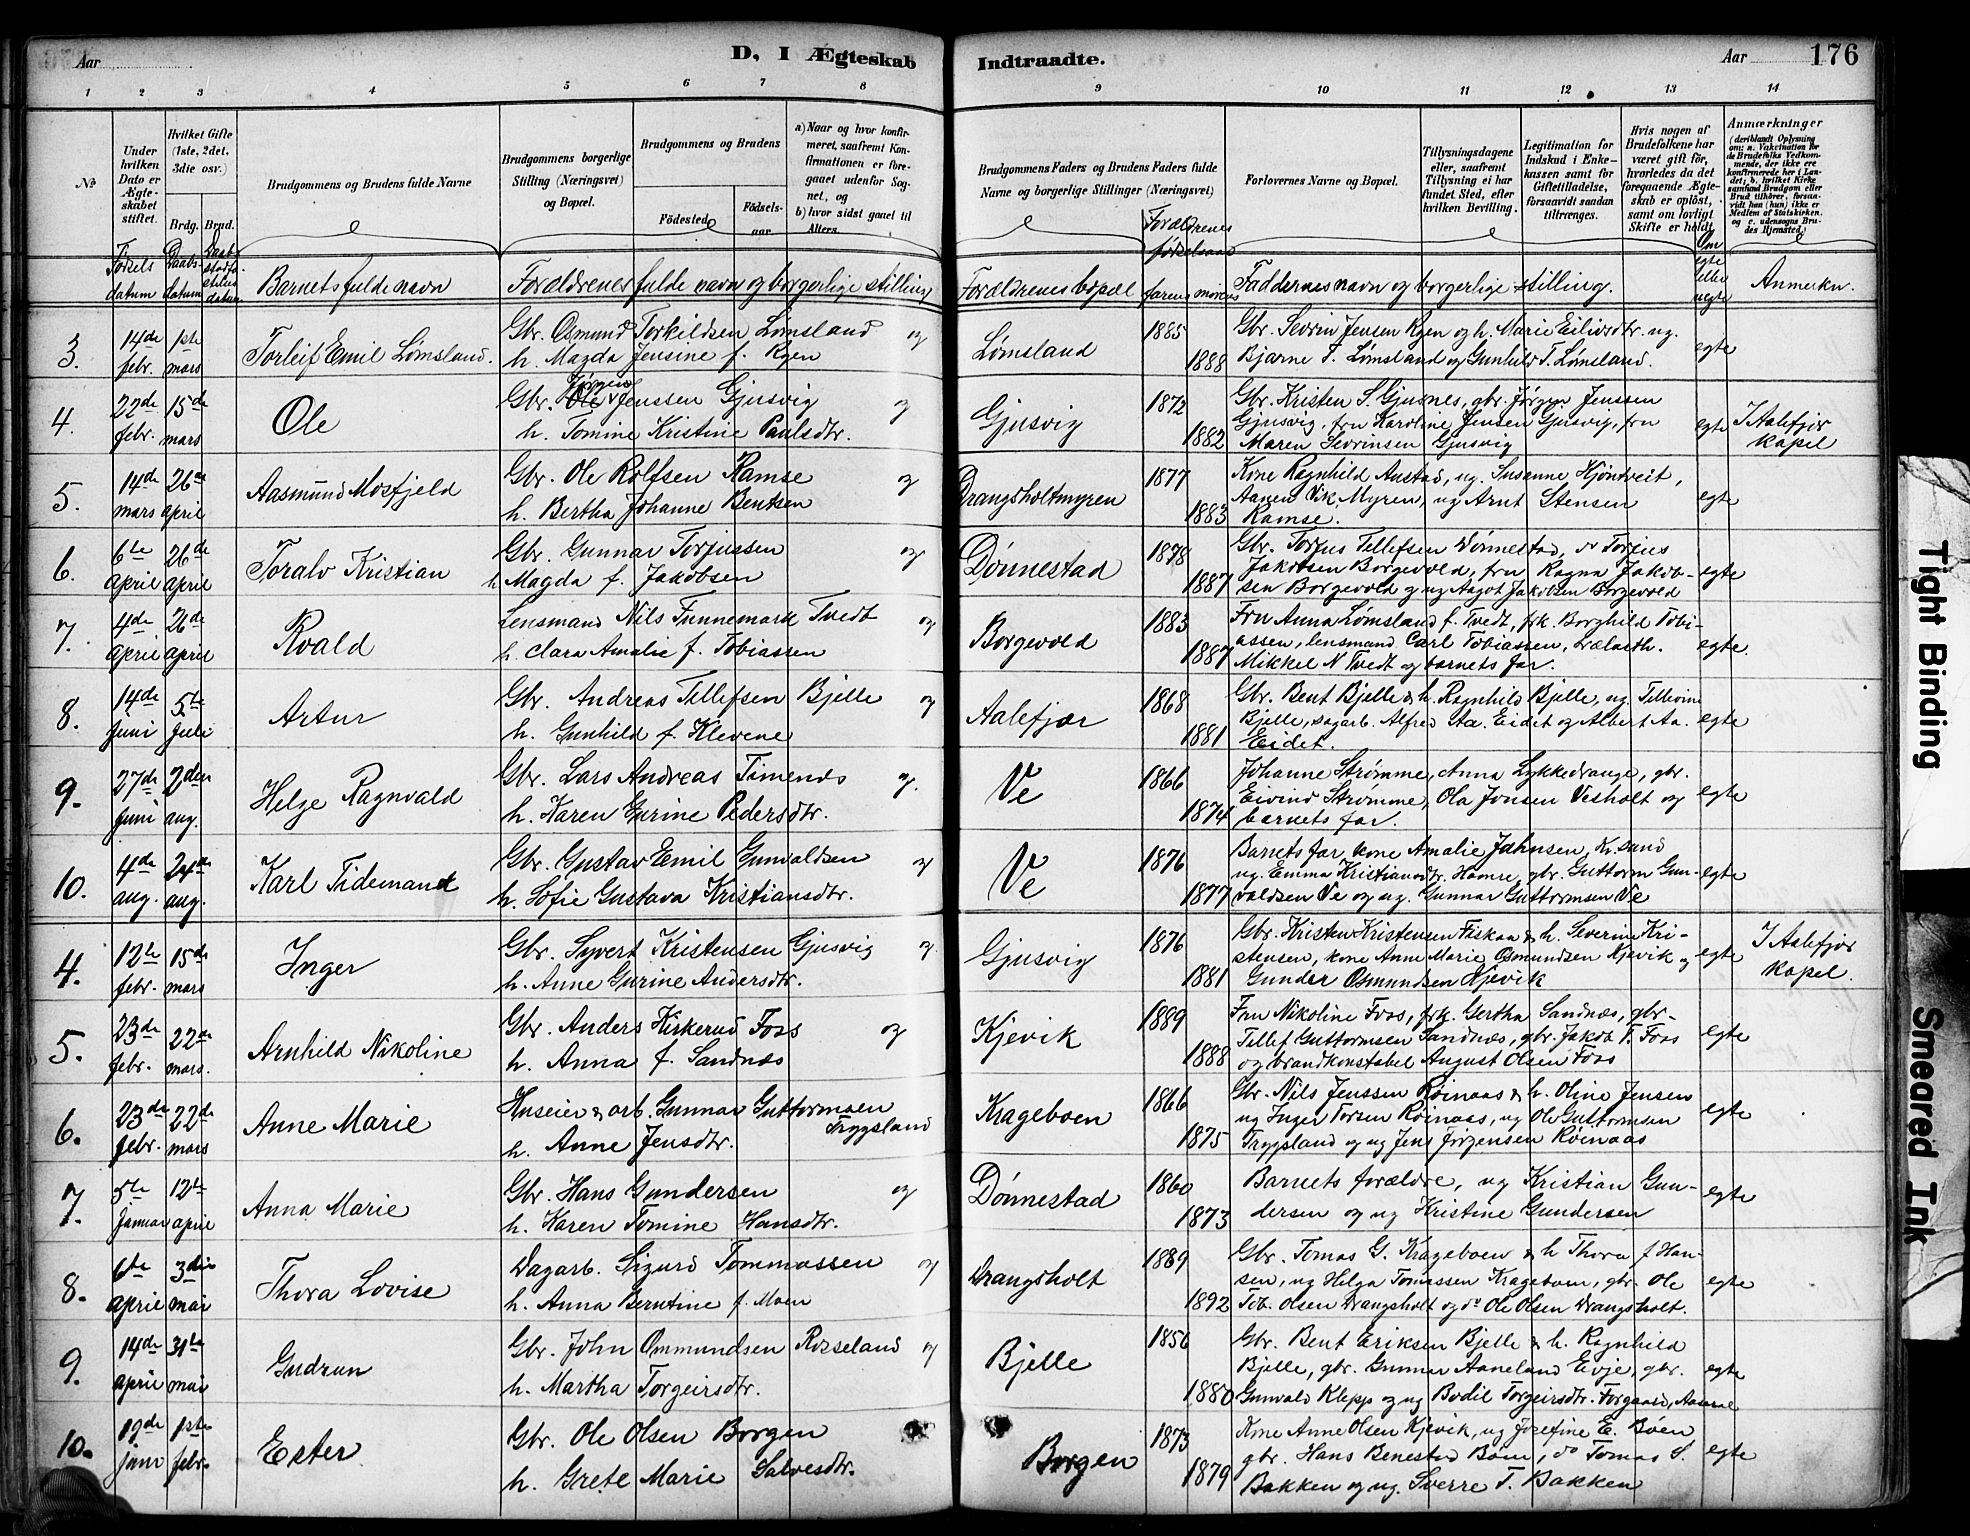 Aar
D, I Ægteskab Indtraadte.
Aar 176
1 2 3 4 5 6 7 8 9 10 11 12 13 14
No
Under hvilken Dato er Ægteskabet stiftet.
Hvilket Gifte (1ste, 2det, 3die osv.)
Brdg. Brud.
Brudgommens og Brudens fulde Navne
Brudgommens borgerlige Stilling (Næringsvei) og Bopæl.
Brudgommens og Brudens
Fødested
Fødsels-aar.
a) Naar og hvor konfirmeret, saafremt Konfirmationen er foregaaet udenfor Sognet, og
b) hvor sidst gaaet til Alters.
Brudgommens Faders og Brudens Faders fulde Navne og borgerlige Stillinger (Næringsvei)
Forlovernes Navne og Bopæl.
Tillysningsdagene eller, saafremt Tillysning ei har fundet Sted, efter hvilken Bevilling.
Legitimation for Indskud i Enkekassen samt for Giftetilladelse, forsaavidt saadan tiltrænges.
Hvis nogen af Brudefolkene har været gift før, hvorledes da det foregaaende Ægteskab er opløst, samt om lovligt Skifte er holdt.
Anmærkninger
(deriblandt Oplysning om: a. Vakcination for de Brudefolks Vedkommende, der ikke ere konfirmerede her i Landet; b. hvilket Kirkesamfund Brudgom eller Brud tilhører, forsaavidt han (hun) ikke er Medlem af Statskirken, og c. udensogns Brudes Hjemsted.)
Fødsels datum
Daabs-datum
Barnets fulde navn
Forældrenes fulde navn og borgerlige stilling
Forældrenes bopæl
Forældrenes fødselsaar
farens morens
Faddernes navn og borgerlige stilling.
Om egte eller uegte
Anmerkn.
3. 14de febr. 1ste mars Torleif Emil Lømsland.
Gbr. Osmund Torkildsen Lømsland og
h. Magda Jensine f. Ryen
Lømsland 1885 1888
Gbr. Sevrin Jensen Ryen og h. Marie Eilivsdtr. ug.
Bjarne T. Lømsland og Gunhild T. Lømsland.
egte
4. 22de febr. 15de mars Ole
Gbr. Ole Jørgen Jenssen Gjusvig og
h. Tomine Kristine Paulsdtr.
Gjusvig 1872 1882
Gbr. Kristen S. Gjusnes, gbr. Jørgen Jenssen
Gjusvig, fru Karoline Jensen Gjusvig, fru
Maren Sevrinsen Gjusvig
egte I Aalefjær kapel
5. 14de mars 26de april Aasmund Mosfjeld
Gbr. Ole Rolfsen Ramse og
h. Bertha Johanne Bentsen
Drangsholtmyren 1877 1883
Kone Ragnhild Austad, ug. Susanne Hjøntveit,
Aanen Vik Myren, ug Arnt Stensen
Ramse.
egte
6. 6te april 26de april Toralv Kristian
Gbr. Gunnar Torjussen og
h. Magda f. Jakobsen
Dønnestad 1878 1887
Gbr. Torjus Tellefsen Dønnestad, do Torjus
Jakobsen Borgevold, fru Ragna Jakob-
sen Borgevold og ug Aagot Jakobsen Borgevold
egte
7. 4de april 26de april Roald
Lensmand Nils Finnemark Tvedt og
h. Clara Amalie f. Tobiassen
Borgevold 1883 1887
Fru Anna Lømsland f. Tvedt, frk. Borghild Tobi-
assen, lensmand Carl Tobiassen,
Mikkel N Tvedt og barnets far.
egte.
8. 14de juni 5te juli Artur
Gbr. Andreas Tellefsen Bjelle og
h. Gunhild f. Klevene
Aalefjær 1868 1881
Gbr. Bent Bjelle & h. Ragnhild Bjelle, ug. Tellevine
Bjelle, sagarb. Alfred Aa. Eidet og Albert Aa.
Eidet.
egte
9. 27de juni 2den aug. Helge Ragnvald
Gbr. Lars Andreas Timends og.
h. Karen Gurine Pedersdtr.
Ve 1866 1874
Johanne Strømme, Anna Lykkedrange, gbr.
Eivind Strømme, Ola Jensen Vesholt og
barnets far.
egte
10. 4de aug. 24de aug. Karl Tidemand
Gbr. Gustav Emil Gunvaldsen og
h. Sofie Gustava Kristiansdtr.
Ve 1876 1877
Barnets far, kone Amalie Jahnsen, Kr.sand
ug. Emma Kristiansdtr. Hamre, gbr. Guttorm Gun-
valdsen Ve og ug. Gunnar Guttormsen Ve
egte
4. 12te febr. 15de mars Inger
Gbr. Syvert Kristensen Gjusvig og
h. Anne Gurine Andersdtr.
Gjusvig 1876 1881
Gbr. Kristen Kristensen Fiskaa & h. Severine Kri-
stensen, kone Anne Marie Osmundsen Kjevik og
Gunder Osmundsen Kjevik
egte I Aalefjær kapel.
5. 23de febr. 22de mars. Arnhild Nikoline
Gbr. Anders Kirkerud Foss og
h. Anna f. Sandnæs
Kjevik 1889 1888
Fru Nikoline Foss, frk. Gertha Sandnæs, gbr-
Tellef Guttormsen Sandnæs, gbr. Jakob T. Foss
og brandkonstabel August Olsen Foss
egte
6. 23de febr. 22de mars Anne Marie
Huseier & arb. Gunnar Guttormsen Trygsland
h. Anne Jensdtr.
Krageboen 1866 1875
Gbr. Nils Jenssen Røinaas & h. Oline Jensen
ug Inger Torsen Røinaas, ug Ole Guttormsen
Trygsland og ug Jens Jørgensen Røinaas
egte
7. 5te januar 12te april Anna Marie
Gbr. Hans Gundersen og
h. Karen Tomine Hansdtr.
Dønnestad 1860 1873
Barnets forældre, ug Kristian Gun-
dersen og ug Kristine Gundersen
egte
8. 6te april 3die mai Thora Lovise
Dagarb. Sigurd Tommassen og
h. Anna Berntine f. Moen
Drangsholt 1889 1892
Gbr. Tomas G. Krageboen & h Thora f Han-
sen, ug Helga Tomassen Krageboen, gbr. Ole
Tob. Olsen Drangsholt og do Ole Olsen Drangsholt.
egte
9. 14de april 31te mai Gudrun
Gbr. John Ommundsen Rosseland og
h. Martha Torgeirsdtr.
Bjelle 1856 1880
Gbr. Bent Eriksen Bjelle & h. Ragnhild
Bjelle, gbr. Gunnar Aaneland Evje, gbr.
Gunvald Klepp og ug Bodil Torgeirsdtr.
egte
10. 19de juni 1ste febr. Ester
Gbr. Ole Olsen Borgen
h. Grete Marie Salvesdtr.
Borgen 1873 1879
Kone Anne Olsen Kjevik, ug Josefine E. Bøen
gbr. Hans Benestad Bøen, do Tomas S.
Bakken og ug. Sverre T. Bakken
egte
Tight Binding
Smeared Ink